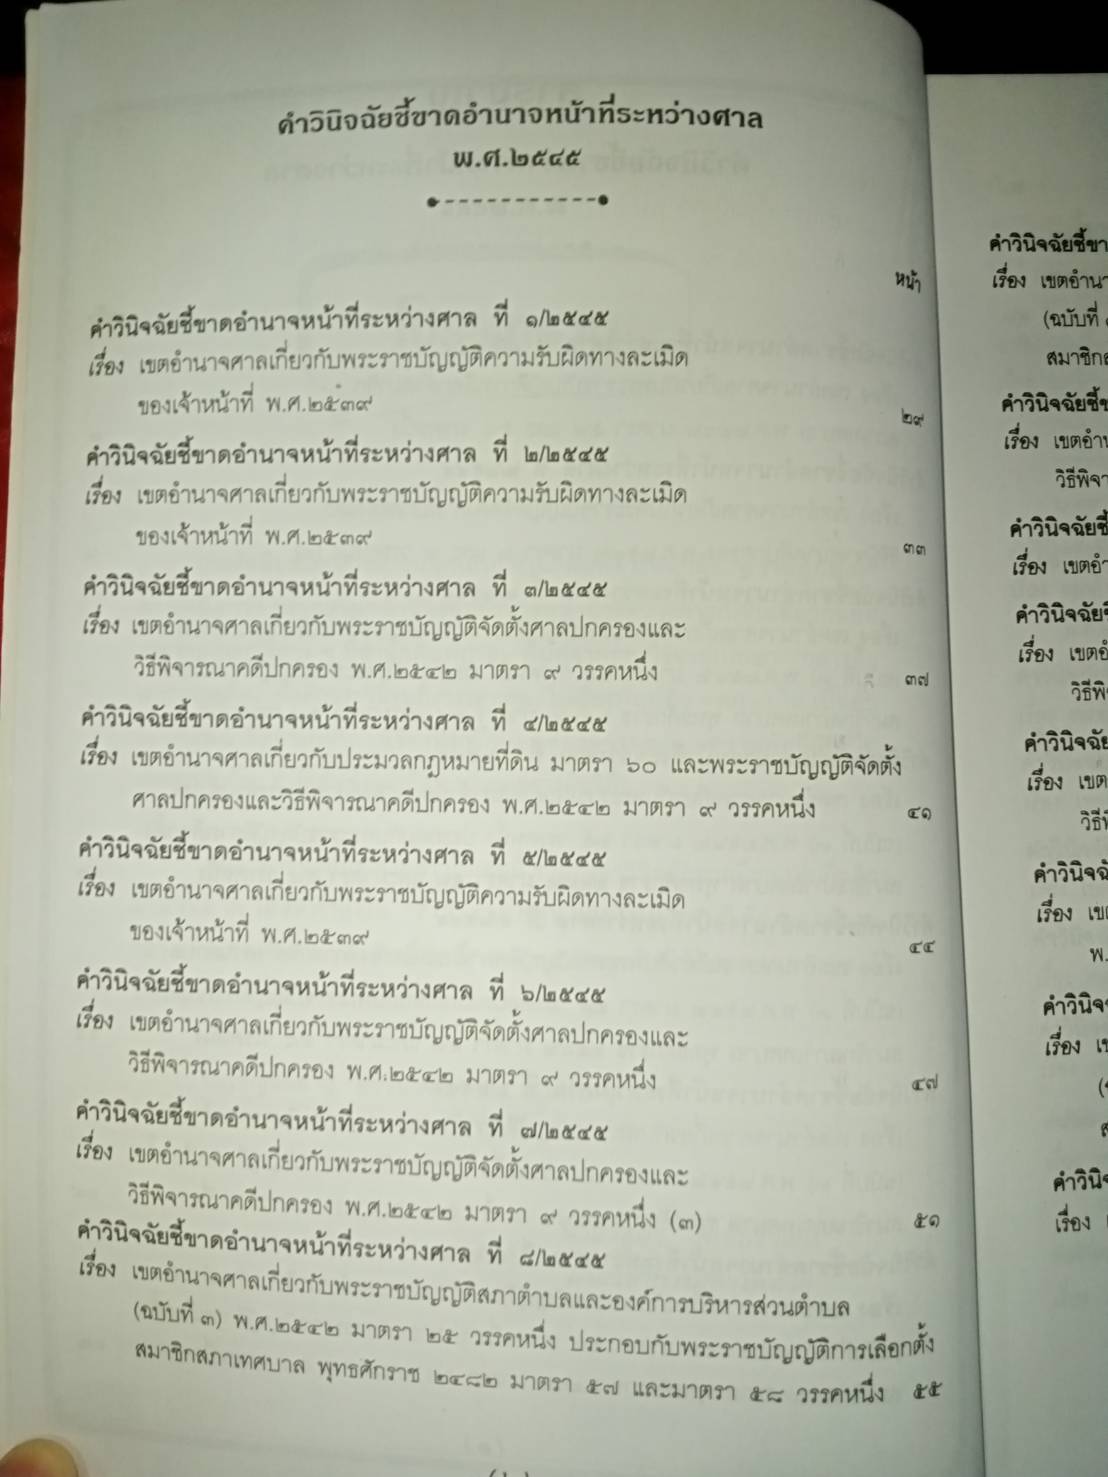 คำวินิจฉัยชี้ขาดอำนาจหน้าที่ระหว่างศาล
พ.ศ.๒๕๔๕
หน้า
คำวินิจฉัยชี้ขาดอำนาจหน้าที่ระหว่างศาล ที่ ๑/๒๕๔๕
เรื่อง เขตอำนาจศาลเกี่ยวกับพระราชบัญญัติความรับผิดทางละเมิด
ของเจ้าหน้าที่ พ.ศ.๒๕๓๙ ๒๙
คำวินิจฉัยชี้ขาดอำนาจหน้าที่ระหว่างศาล ที่ ๒/๒๕๔๕
เรื่อง เขตอำนาจศาลเกี่ยวกับพระราชบัญญัติความรับผิดทางละเมิด
ของเจ้าหน้าที่ พ.ศ.๒๕๓๙ ๓๓
คำวินิจฉัยชี้ขาดอำนาจหน้าที่ระหว่างศาล ที่ ๓/๒๕๔๕
เรื่อง เขตอำนาจศาลเกี่ยวกับพระราชบัญญัติจัดตั้งศาลปกครองและ
วิธีพิจารณาคดีปกครอง พ.ศ.๒๕๔๒ มาตรา ๙ วรรคหนึ่ง ๓๗
คำวินิจฉัยชี้ขาดอำนาจหน้าที่ระหว่างศาล ที่ ๔/๒๕๔๕
เรื่อง เขตอำนาจศาลเกี่ยวกับประมวลกฎหมายที่ดิน มาตรา ๖๐ และพระราชบัญญัติจัดตั้ง
ศาลปกครองและวิธีพิจารณาคดีปกครอง พ.ศ.๒๕๔๒ มาตรา ๙ วรรคหนึ่ง ๔๑
คำวินิจฉัยชี้ขาดอำนาจหน้าที่ระหว่างศาล ที่ ๕/๒๕๔๕
เรื่อง เขตอำนาจศาลเกี่ยวกับพระราชบัญญัติความรับผิดทางละเมิด
ของเจ้าหน้าที่ พ.ศ.๒๕๓๙ ๔๔
คำวินิจฉัยชี้ขาดอำนาจหน้าที่ระหว่างศาล ที่ ๖/๒๕๔๕
เรื่อง เขตอำนาจศาลเกี่ยวกับพระราชบัญญัติจัดตั้งศาลปกครองและ
วิธีพิจารณาคดีปกครอง พ.ศ.๒๕๔๒ มาตรา ๙ วรรคหนึ่ง ๔๗
คำวินิจฉัยชี้ขาดอำนาจหน้าที่ระหว่างศาล ที่ ๗/๒๕๔๕
เรื่อง เขตอำนาจศาลเกี่ยวกับพระราชบัญญัติจัดตั้งศาลปกครองและ
วิธีพิจารณาคดีปกครอง พ.ศ.๒๕๔๒ มาตรา ๙ วรรคหนึ่ง (๓) ๕๑
คำวินิจฉัยชี้ขาดอำนาจหน้าที่ระหว่างศาล ที่ ๘/๒๕๔๕
เรื่อง เขตอำนาจศาลเกี่ยวกับพระราชบัญญัติสภาตำบลและองค์การบริหารส่วนตำบล
(ฉบับที่ ๓) พ.ศ.๒๕๔๒ มาตรา ๒๕ วรรคหนึ่ง ประกอบกับพระราชบัญญัติการเลือกตั้ง
สมาชิกสภาเทศบาล พุทธศักราช ๒๔๘๒ มาตรา ๕๗ และมาตรา ๕๘ วรรคหนึ่ง ๕๕
เรื่อง
(ฉบับที่
เรื่อง
เรื่อง
เรื่อง
เรื่อง
เรื่อง
เรื่อง
เรื่อง